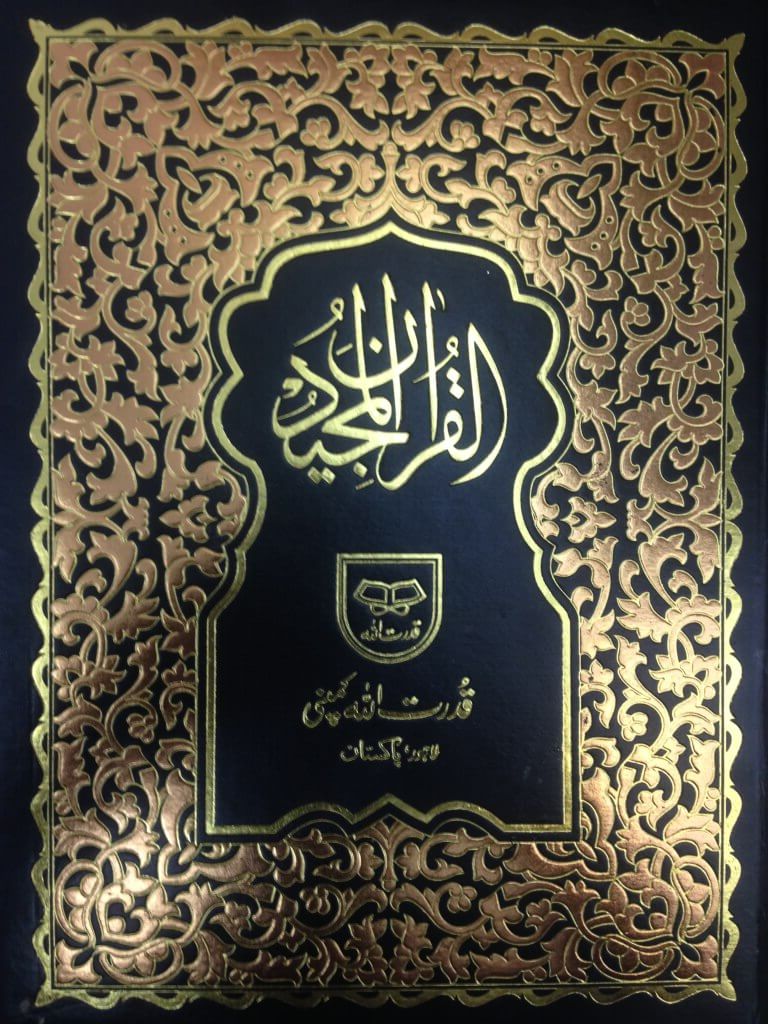 القرآن المجيد
قدرت الله
قُدرت اللہ کمپنی
لاہور، پاکستان